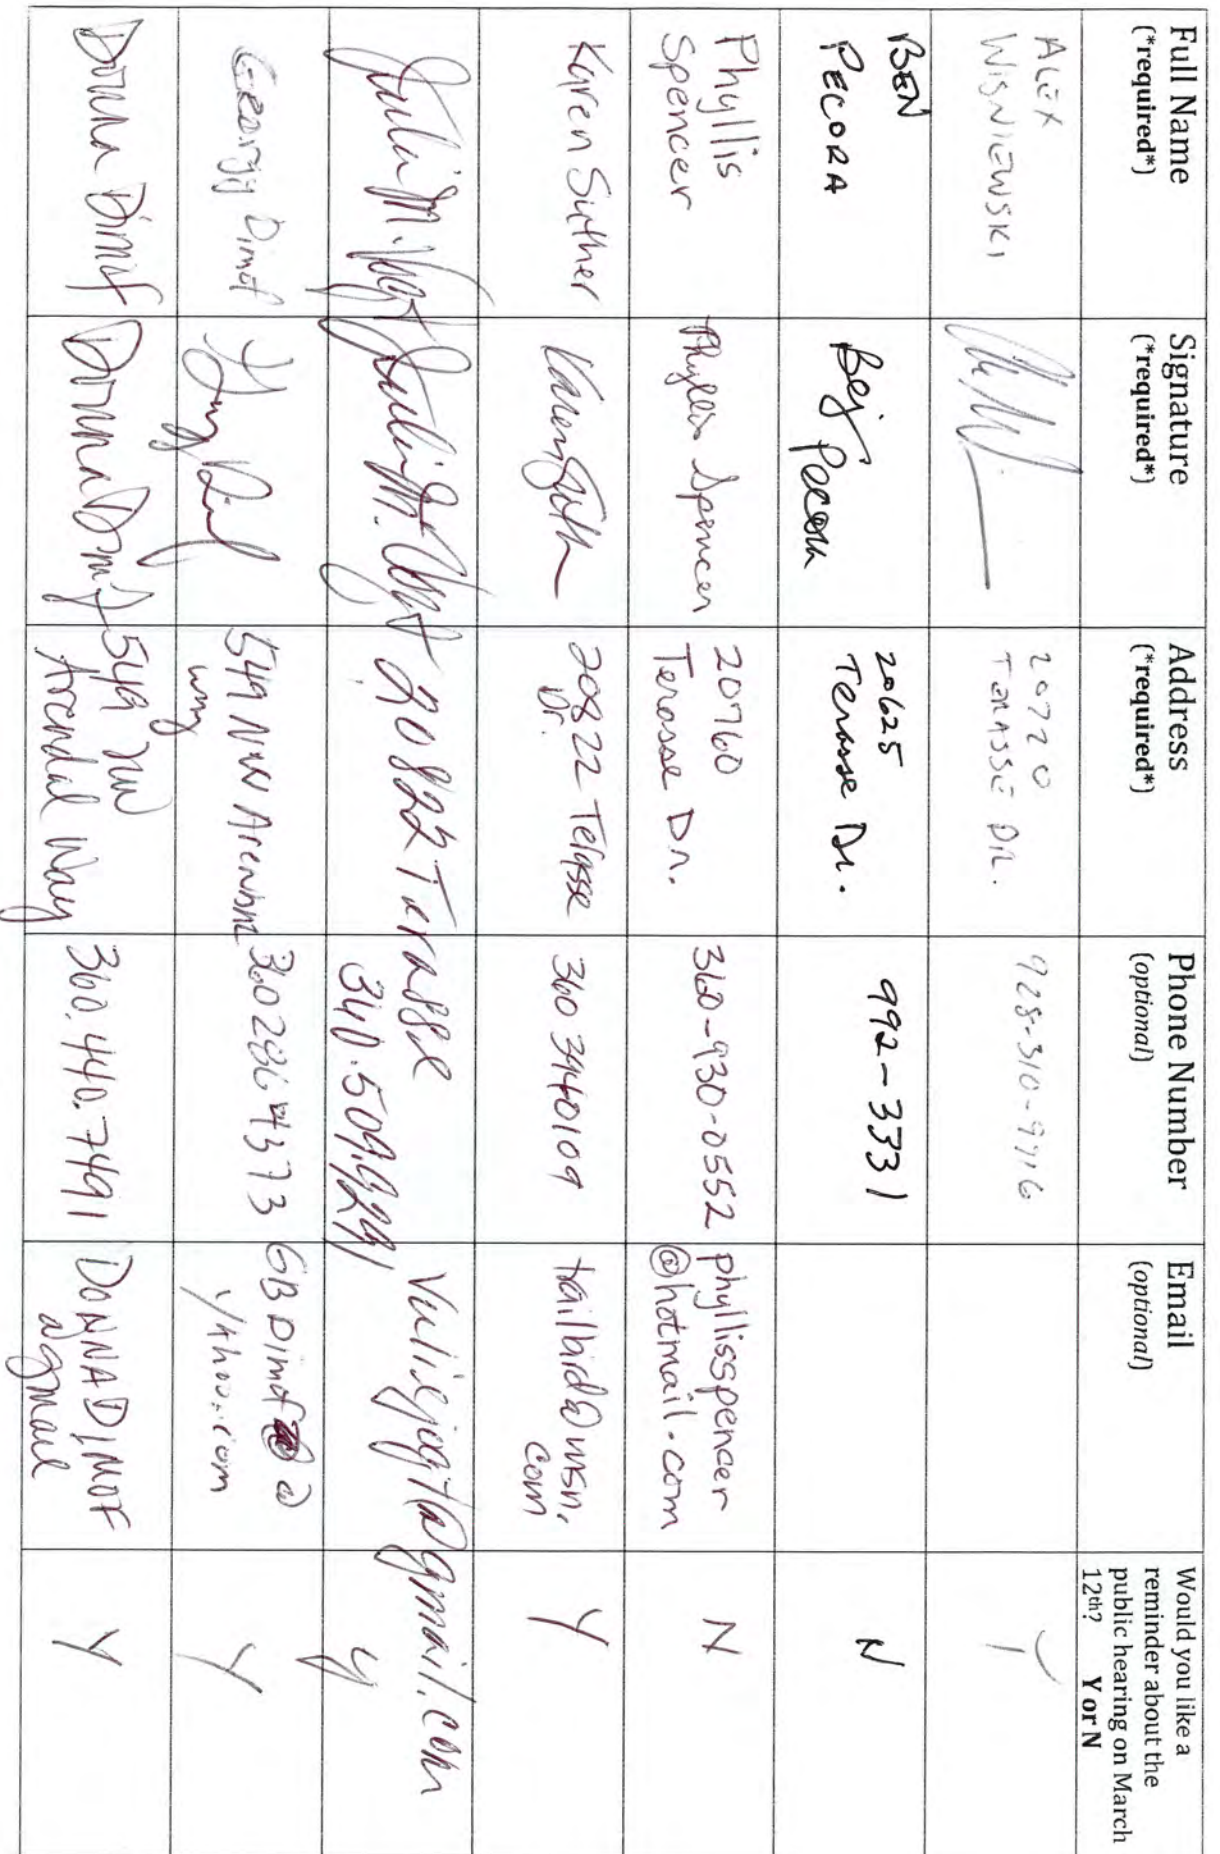 Full Name
(*required*)
Signature
(*required*)
Address
(*required*)
Phone Number
(optional)
Email
(optional)
Would you like a
reminder about the
public hearing on March
12th? Y or N
ALEX
WISNIEWSKI
20720
TERASSE DR.
928-310-9716
Y
BEN
PECORA
20625
Terasse Dr.
992-3331
N
Phyllis
Spencer
Phyllis Spencer
20760
Terasse Dr.
360-930-0552
phyllisspencer
@hotmail.com
N
Karen Suther
20822 Terasse
Dr.
360 3940109
tailbird@msn.
com
Y
Julie M. Vogt
Julie M. Vogt
20822 Terasse
360.509.9291
@gmail.com
y
Dimof
549 NW
Way
GB Dimof @
Yahoo.com
Y
Donna Dimof
Donna Dimof
549 NW
Arendal Way
360.440.7491
DONNADIMOF
@gmail
Y